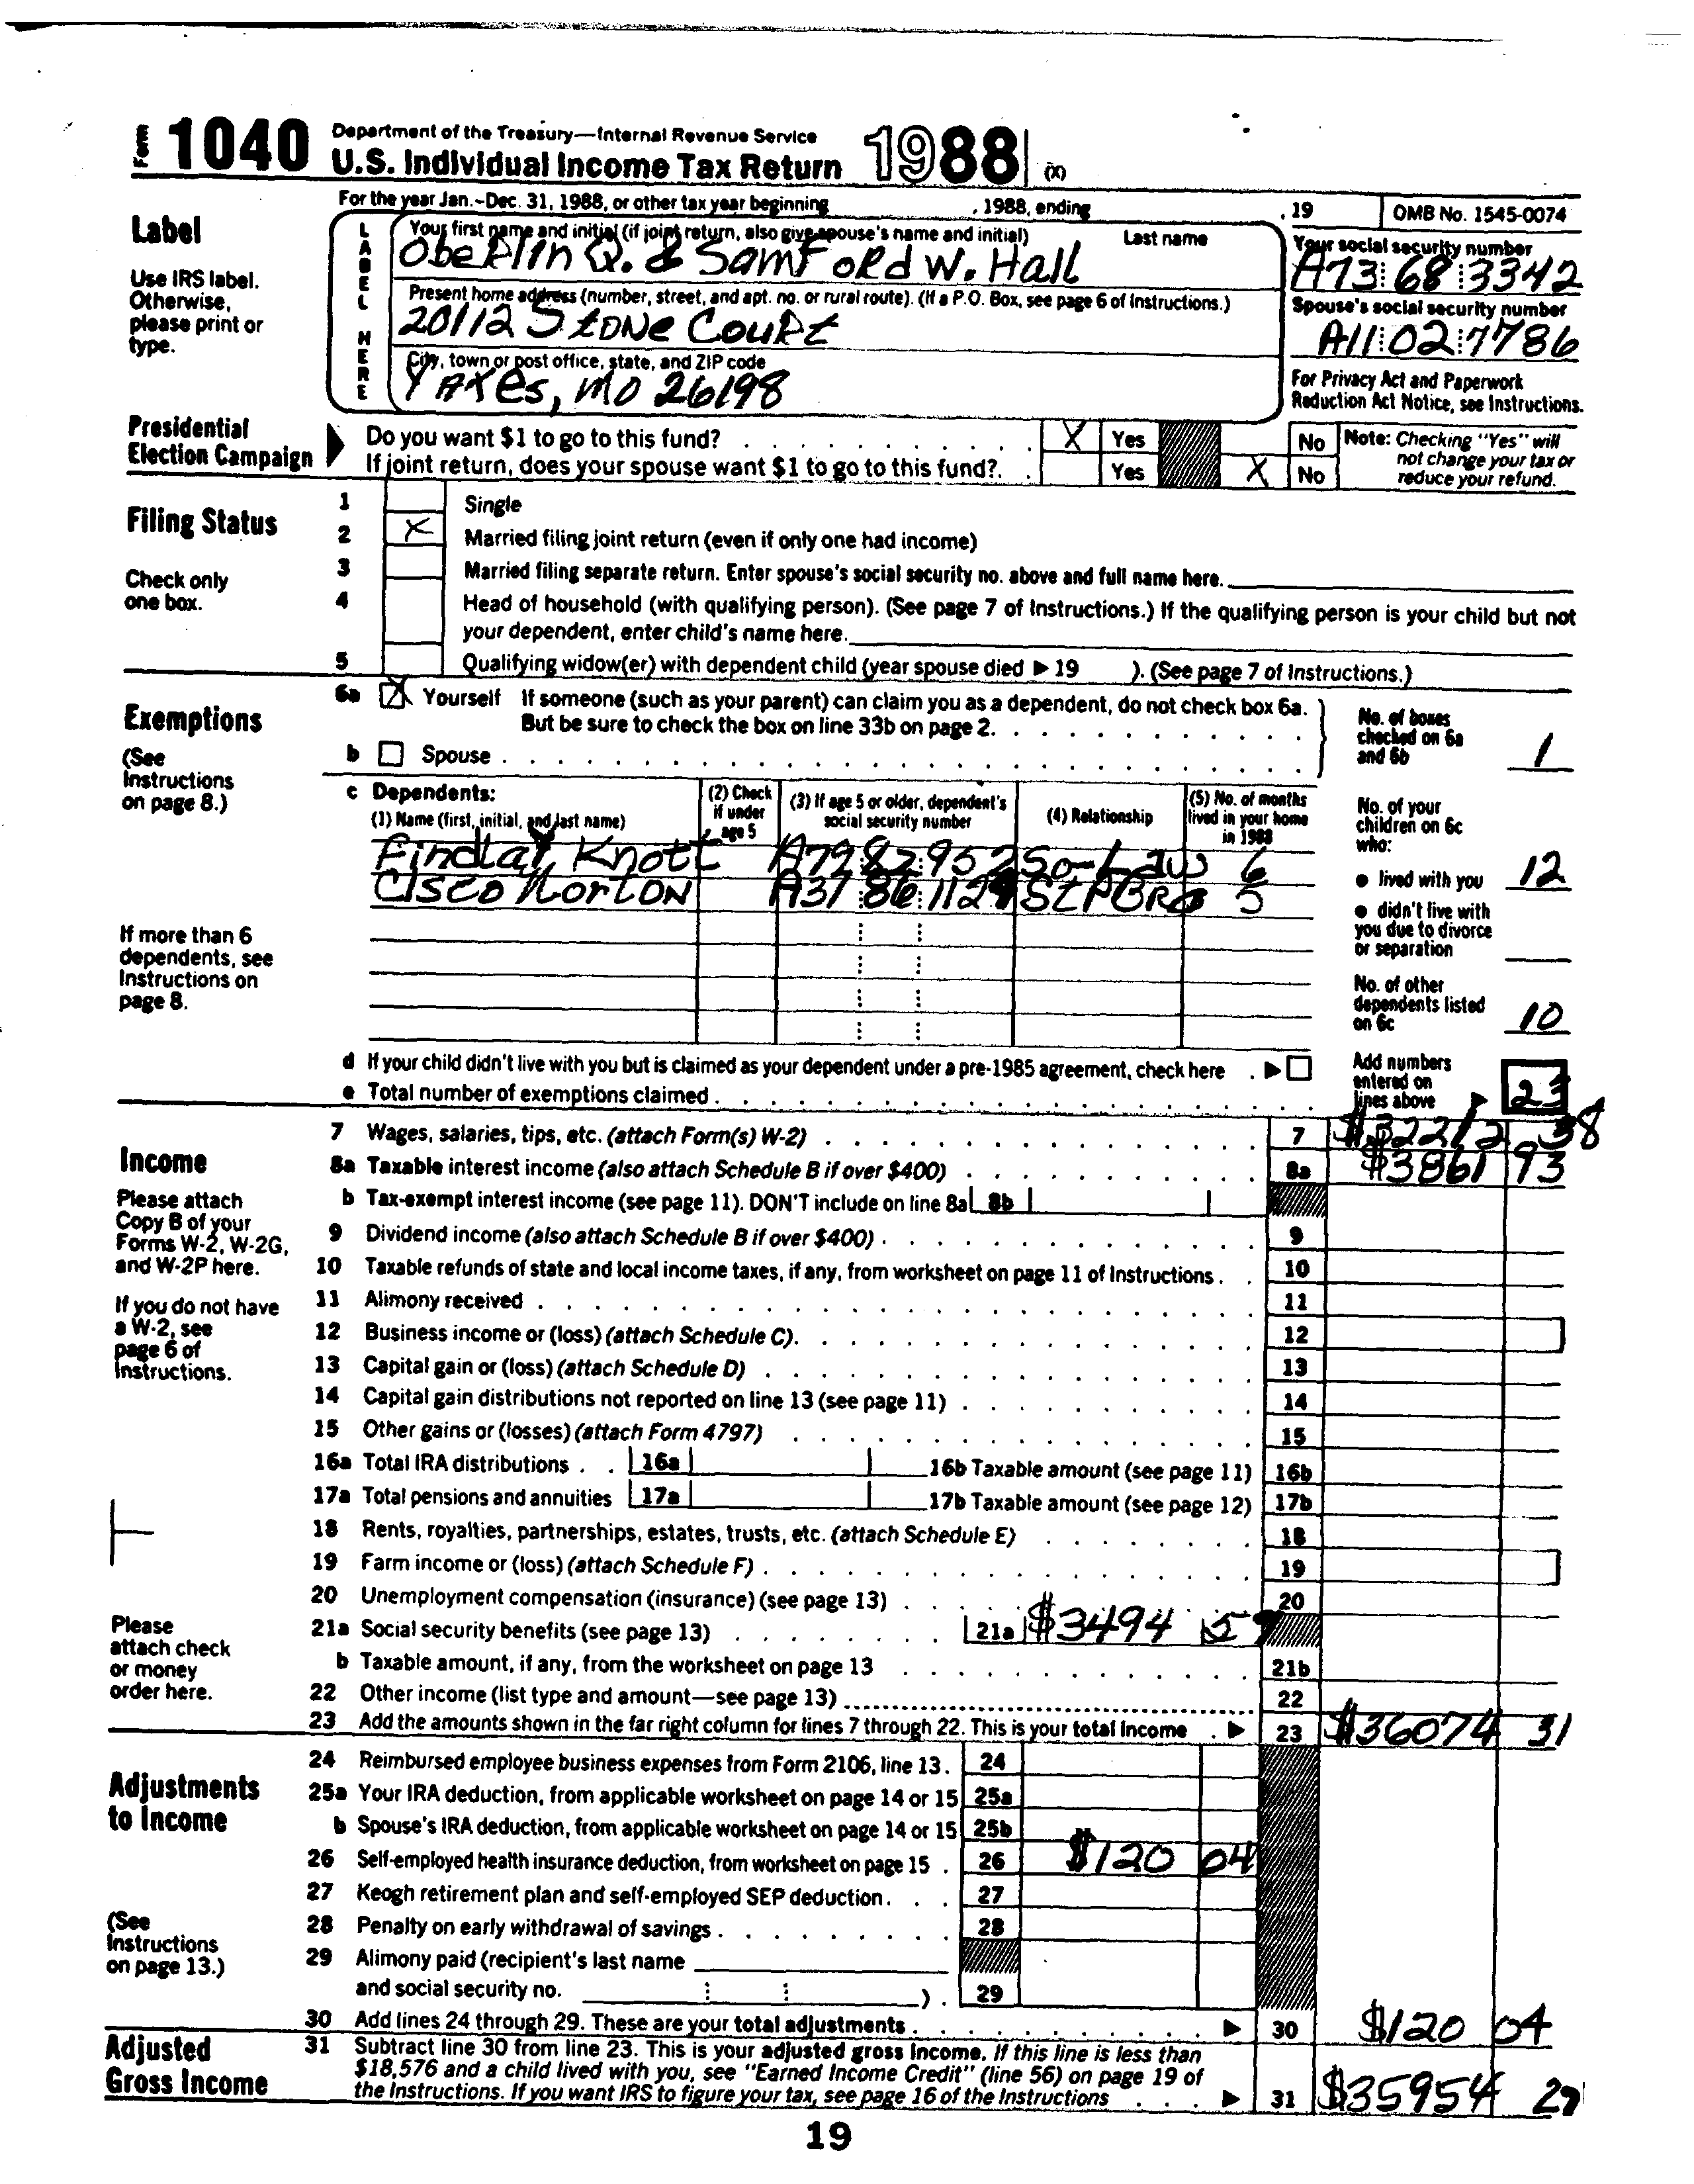 Form 1040 Department of the Treasury—Internal Revenue Service
U.S. Individual Income Tax Return 1988 (X)
For the year Jan.-Dec. 31, 1988, or other tax year beginning , 1988, ending , 19 OMB No. 1545-0074
Label
Use IRS label.
Otherwise,
please print or
type.
LABEL HERE
Your first name and initial (if joint return, also give spouse's name and initial) Last name
Oberlin Q. & Samford W. Hall
Your social security number
A73:68:3342
Present home address (number, street, and apt. no. or rural route). (If a P.O. Box, see page 6 of Instructions.)
20112 Stone Court
Spouse's social security number
A11:02:7786
City, town or post office, state, and ZIP code
Yaxes, MO 26198
For Privacy Act and Paperwork
Reduction Act Notice, see Instructions.
Presidential
Election Campaign
Do you want $1 to go to this fund? X Yes No
If joint return, does your spouse want $1 to go to this fund? Yes X No
Note: Checking "Yes" will
not change your tax or
reduce your refund.
Filing Status
Check only
one box.
1 Single
2 X Married filing joint return (even if only one had income)
3 Married filing separate return. Enter spouse's social security no. above and full name here.
4 Head of household (with qualifying person). (See page 7 of Instructions.) If the qualifying person is your child but not
your dependent, enter child's name here.
5 Qualifying widow(er) with dependent child (year spouse died ▶ 19 ). (See page 7 of Instructions.)
Exemptions
(See
Instructions
on page 8.)
6a X Yourself If someone (such as your parent) can claim you as a dependent, do not check box 6a.
But be sure to check the box on line 33b on page 2.
b Spouse
No. of boxes
checked on 6a
and 6b 1
c Dependents:
(1) Name (first, initial, and last name)
(2) Check
if under
age 5
(3) If age 5 or older, dependent's
social security number
(4) Relationship
(5) No. of months
lived in your home
in 1988
Findlay Knott A79 82 952 So-Law 6
Cisco Norton A37 86 1129 StPBro 5
No. of your
children on 6c
who:
● lived with you 12
● didn't live with
you due to divorce
or separation
No. of other
dependents listed
on 6c 10
If more than 6
dependents, see
Instructions on
page 8.
d If your child didn't live with you but is claimed as your dependent under a pre-1985 agreement, check here ▶
e Total number of exemptions claimed
Add numbers
entered on
lines above ▶ 23
Income
Please attach
Copy B of your
Forms W-2, W-2G,
and W-2P here.
If you do not have
a W-2, see
page 6 of
Instructions.
Please
attach check
or money
order here.
7 Wages, salaries, tips, etc. (attach Form(s) W-2) 7 $32212 38
8a Taxable interest income (also attach Schedule B if over $400) 8a $3861 93
b Tax-exempt interest income (see page 11). DON'T include on line 8a 8b
9 Dividend income (also attach Schedule B if over $400) 9
10 Taxable refunds of state and local income taxes, if any, from worksheet on page 11 of Instructions 10
11 Alimony received 11
12 Business income or (loss) (attach Schedule C) 12
13 Capital gain or (loss) (attach Schedule D) 13
14 Capital gain distributions not reported on line 13 (see page 11) 14
15 Other gains or (losses) (attach Form 4797) 15
16a Total IRA distributions 16a 16b Taxable amount (see page 11) 16b
17a Total pensions and annuities 17a 17b Taxable amount (see page 12) 17b
18 Rents, royalties, partnerships, estates, trusts, etc. (attach Schedule E) 18
19 Farm income or (loss) (attach Schedule F) 19
20 Unemployment compensation (insurance) (see page 13) 20
21a Social security benefits (see page 13) 21a $3494 59
b Taxable amount, if any, from the worksheet on page 13 21b
22 Other income (list type and amount—see page 13) 22
23 Add the amounts shown in the far right column for lines 7 through 22. This is your total income ▶ 23 $36074 31
Adjustments
to Income
(See
Instructions
on page 13.)
24 Reimbursed employee business expenses from Form 2106, line 13. 24
25a Your IRA deduction, from applicable worksheet on page 14 or 15 25a
b Spouse's IRA deduction, from applicable worksheet on page 14 or 15 25b
26 Self-employed health insurance deduction, from worksheet on page 15 26 $120 04
27 Keogh retirement plan and self-employed SEP deduction 27
28 Penalty on early withdrawal of savings 28
29 Alimony paid (recipient's last name
and social security no. ) 29
30 Add lines 24 through 29. These are your total adjustments ▶ 30 $120 04
Adjusted
Gross Income
31 Subtract line 30 from line 23. This is your adjusted gross income. If this line is less than
$18,576 and a child lived with you, see "Earned Income Credit" (line 56) on page 19 of
the Instructions. If you want IRS to figure your tax, see page 16 of the Instructions ▶ 31 $35954 27
19